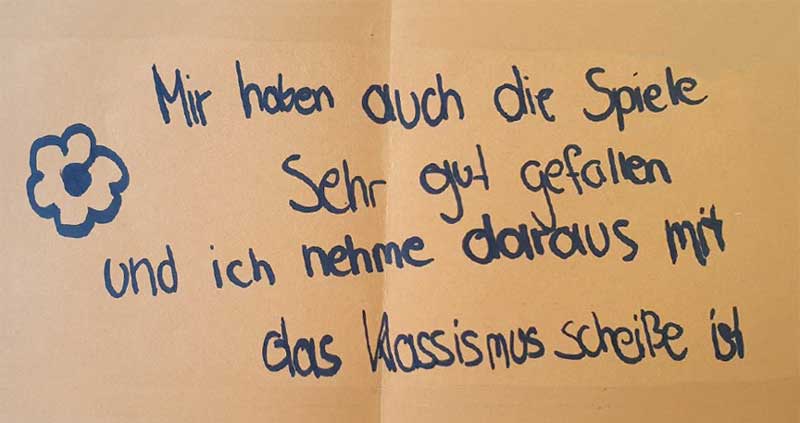 Mir haben auch die Spiele
Sehr gut gefallen
und ich nehme daraus mit
das Klassismus scheiße ist